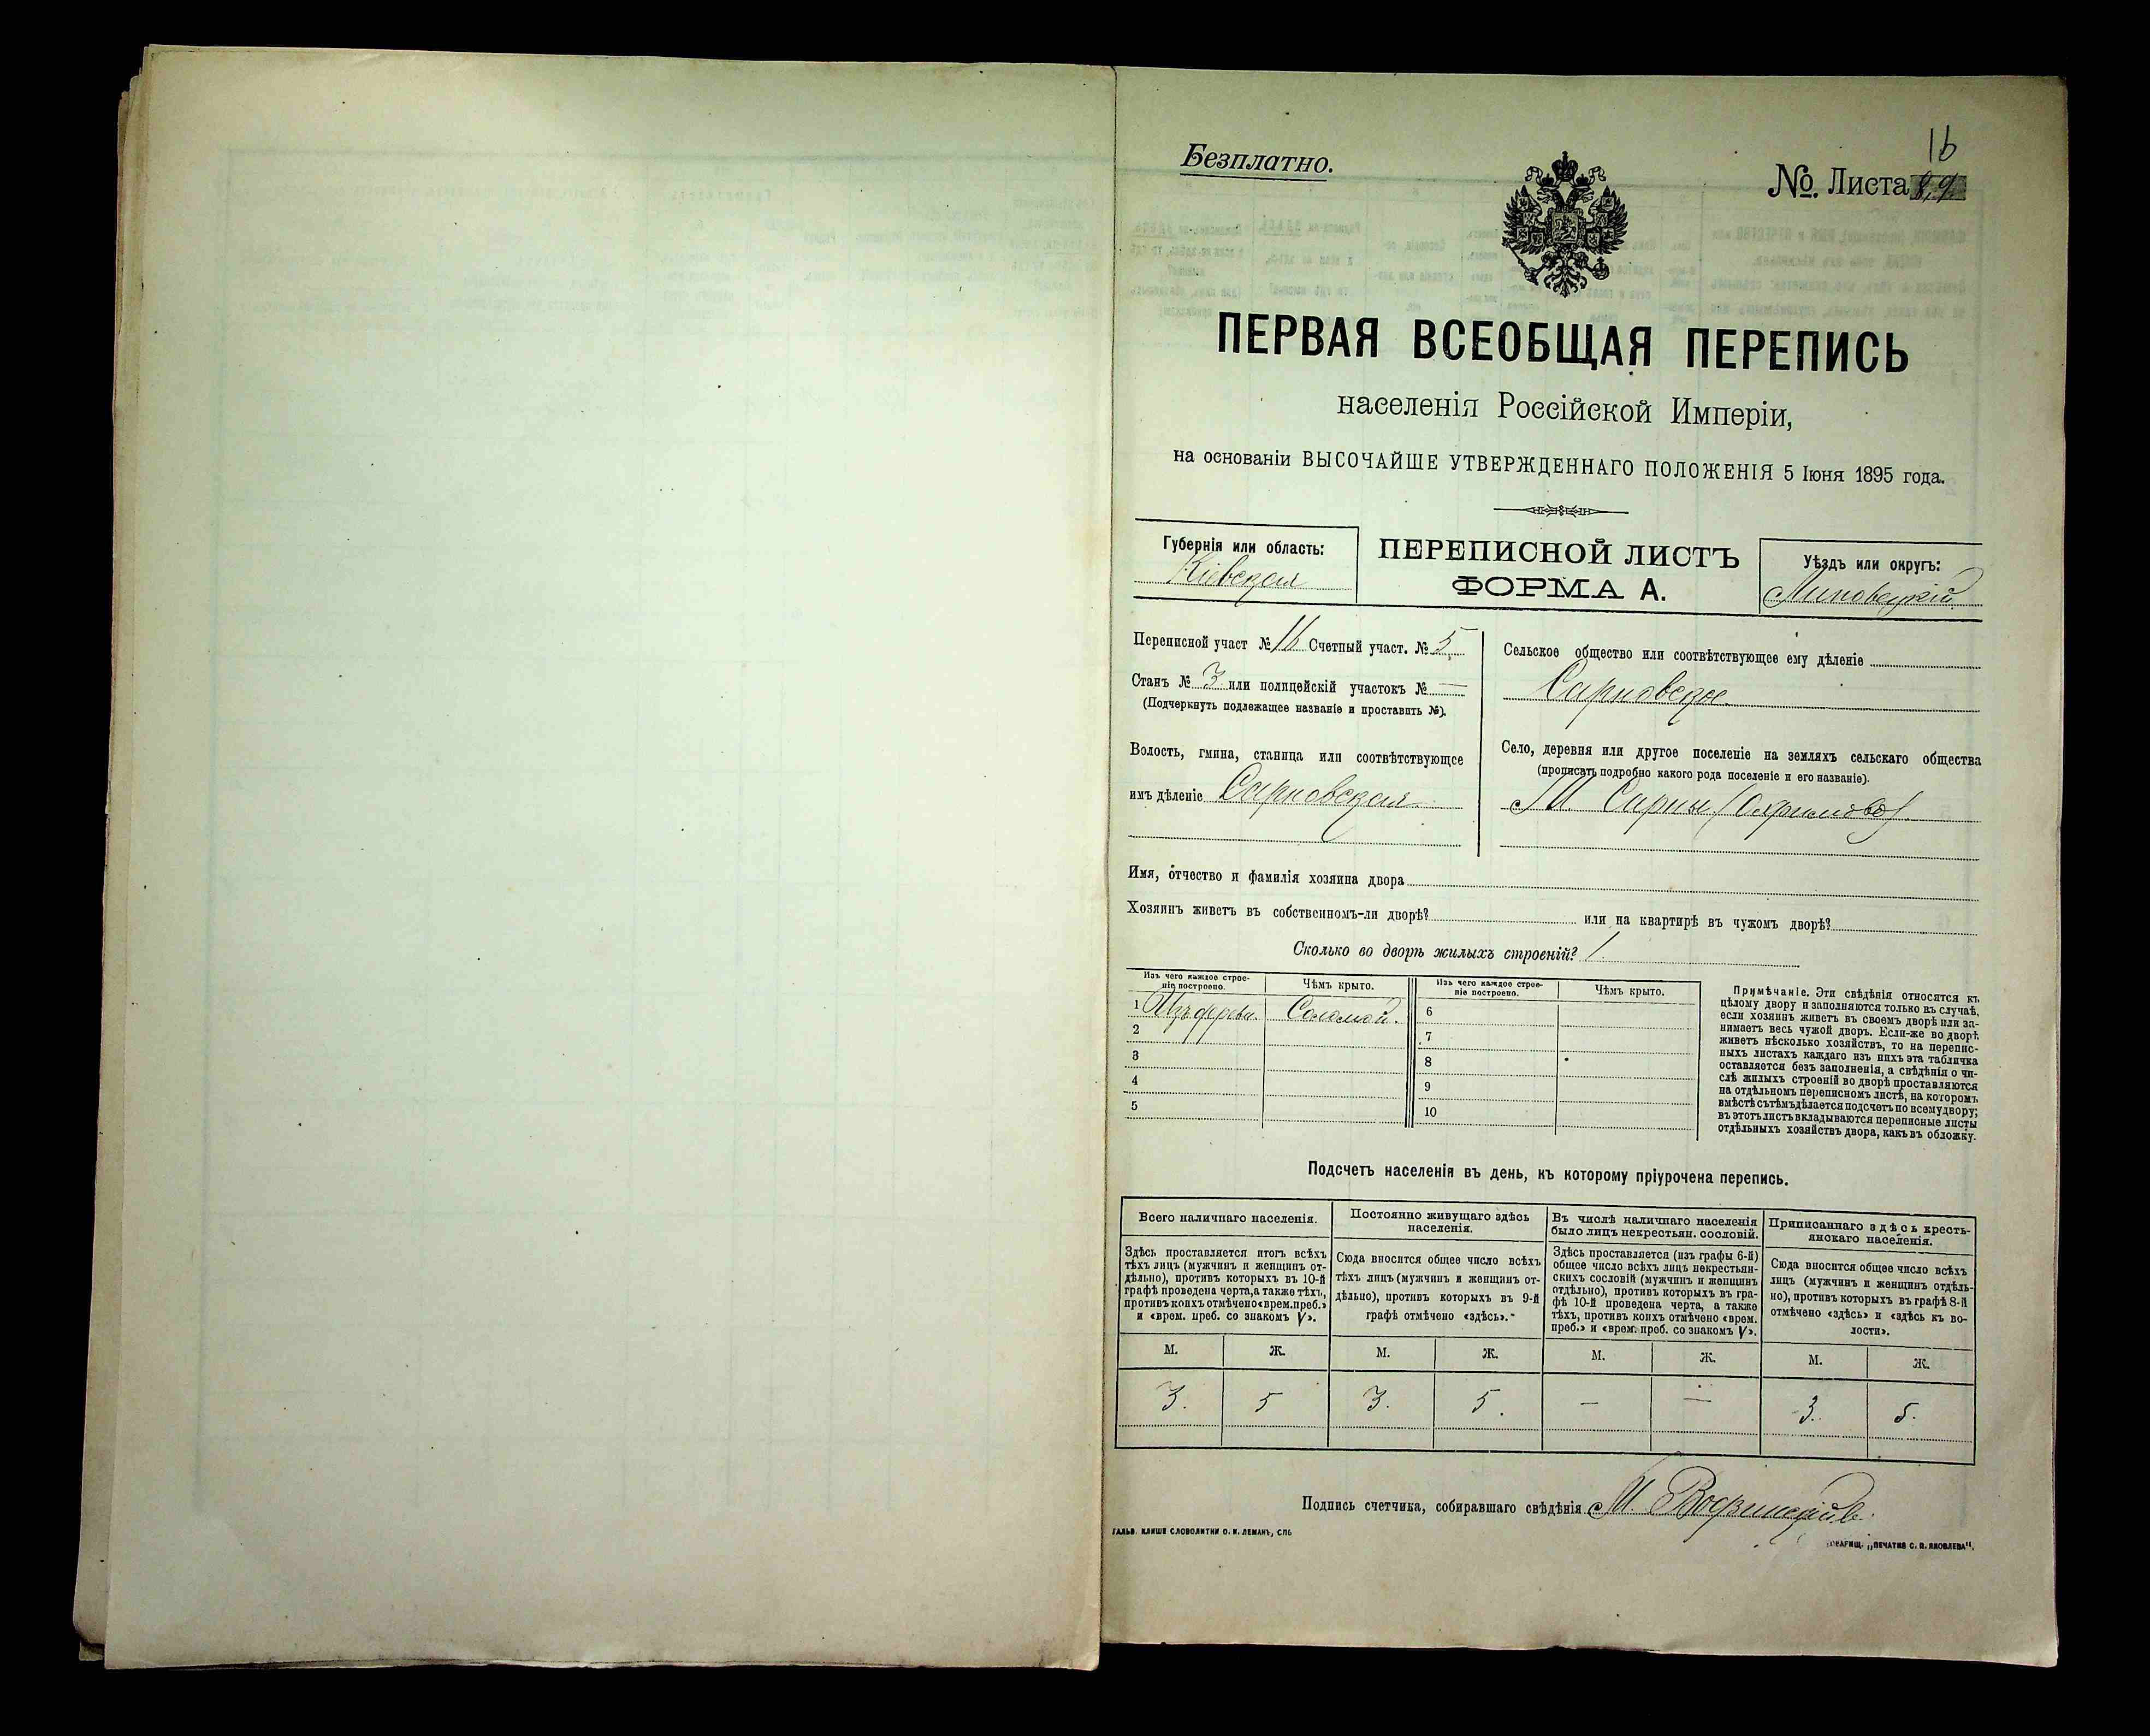 16
Безплатно.
№ Листа
ПЕРВАЯ ВСЕОБЩАЯ ПЕРЕПИСЬ
населенія Россійской Имперіи,
на основаніи ВЫСОЧАЙШЕ УТВЕРЖДЕННАГО ПОЛОЖЕНІЯ 5 Іюня 1895 года.
Губернія или область:
Кіевская
ПЕРЕПИСНОЙ ЛИСТЪ
ФОРМА А.
Уѣздъ или округъ:
Липовецкій
Переписной участ № 16 Счетный участ. № 5.
Станъ № 3 или полицейскій участокъ № —
(Подчеркнуть подлежащее названіе и проставить №).
Волость, гмина, станица или соотвѣтствующее
имъ дѣленіе Сарновская
Сельское общество или соотвѣтствующее ему дѣленіе
Сарновское.
Село, деревня или другое поселеніе на земляхъ сельскаго общества
(прописать подробно какого рода поселеніе и его названіе).
М. Сарны (Охримово)
Имя, отчество и фамилія хозяина двора
Хозяинъ живетъ въ собственномъ-ли дворѣ? или на квартирѣ въ чужомъ дворѣ?
Сколько во дворѣ жилыхъ строеній? 1.
Изъ чего каждое строе-
ніе построено.
Чѣмъ крыто.
Изъ чего каждое строе-
ніе построено.
Чѣмъ крыто.
1 Изъ дерева. Соломой. 6
2 7
3 8
4 9
5 10
Примѣчаніе. Эти свѣдѣнія относятся къ
цѣлому двору и заполняются только въ случаѣ,
если хозяинъ живетъ въ своемъ дворѣ или за-
нимаетъ весь чужой дворъ. Если-же во дворѣ
живетъ нѣсколько хозяйствъ, то на перепис-
ныхъ листахъ каждаго изъ нихъ эта табличка
оставляется безъ заполненія, а свѣдѣнія о чи-
слѣ жилыхъ строеній во дворѣ проставляются
на отдѣльномъ переписномъ листѣ, на которомъ
вмѣстѣ съ тѣмъ дѣлается подсчетъ по всему двору;
въ этотъ листъ вкладываются переписные листы
отдѣльныхъ хозяйствъ двора, какъ въ обложку.
Подсчетъ населенія въ день, къ которому пріурочена перепись.
Всего наличнаго населенія.
Здѣсь проставляется итогъ всѣхъ
тѣхъ лицъ (мужчинъ и женщинъ от-
дѣльно), противъ которыхъ въ 10-й
графѣ проведена черта, а также тѣхъ,
противъ коихъ отмѣчено «врем. преб.»
и «врем. преб. со знакомъ V».
Постоянно живущаго здѣсь
населенія.
Сюда вносится общее число всѣхъ
тѣхъ лицъ (мужчинъ и женщинъ от-
дѣльно), противъ которыхъ въ 9-й
графѣ отмѣчено «здѣсь».
Въ числѣ наличнаго населенія
было лицъ некрестьян. сословій.
Здѣсь проставляется (изъ графы 6-й)
общее число всѣхъ лицъ некрестьян-
скихъ сословій (мужчинъ и женщинъ
отдѣльно), противъ которыхъ въ гра-
фѣ 10-й проведена черта, а также
тѣхъ, противъ коихъ отмѣчено «врем.
преб.» и «врем. преб. со знакомъ V».
Приписаннаго здѣсь кресть-
янскаго населенія.
Сюда вносится общее число всѣхъ
лицъ (мужчинъ и женщинъ отдѣль-
но), противъ которыхъ въ графѣ 8-й
отмѣчено «здѣсь» и «здѣсь къ во-
лости».
М. Ж. М. Ж. М. Ж. М. Ж.
3. 5 3. 5. — — 3. 5.
Подпись счетчика, собиравшаго свѣдѣнія М.
ГАЛЬВ. КЛИШЕ СЛОВОЛИТНИ О. И. ЛЕМАНЪ, СПБ
ТОВАРИЩ. „ПЕЧАТНЯ С. П. ЯКОВЛЕВА".